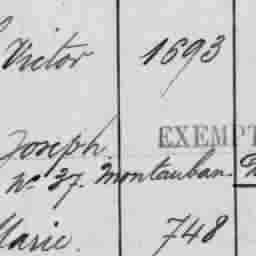 Victor 1693
Joseph. EXEMPT
No 37. Montauban.
Marie. 748